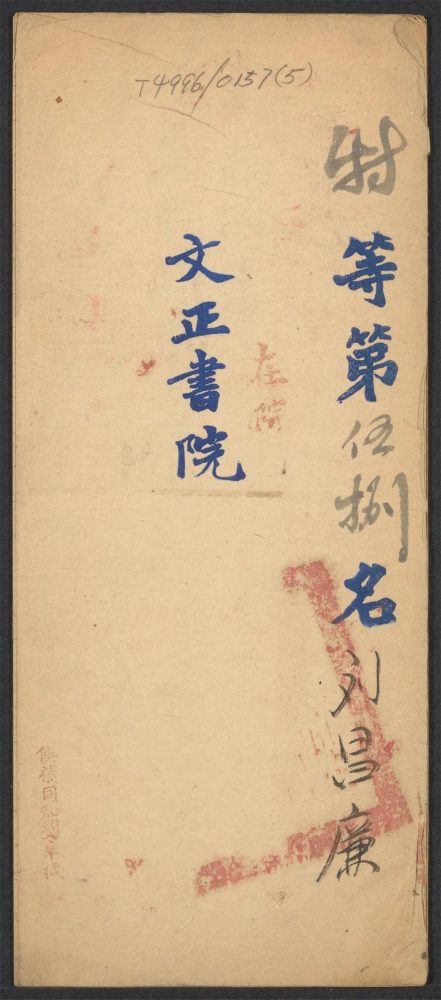 T4996/0157(5)
特等第伍捌名刘昌廉
在院
文正書院